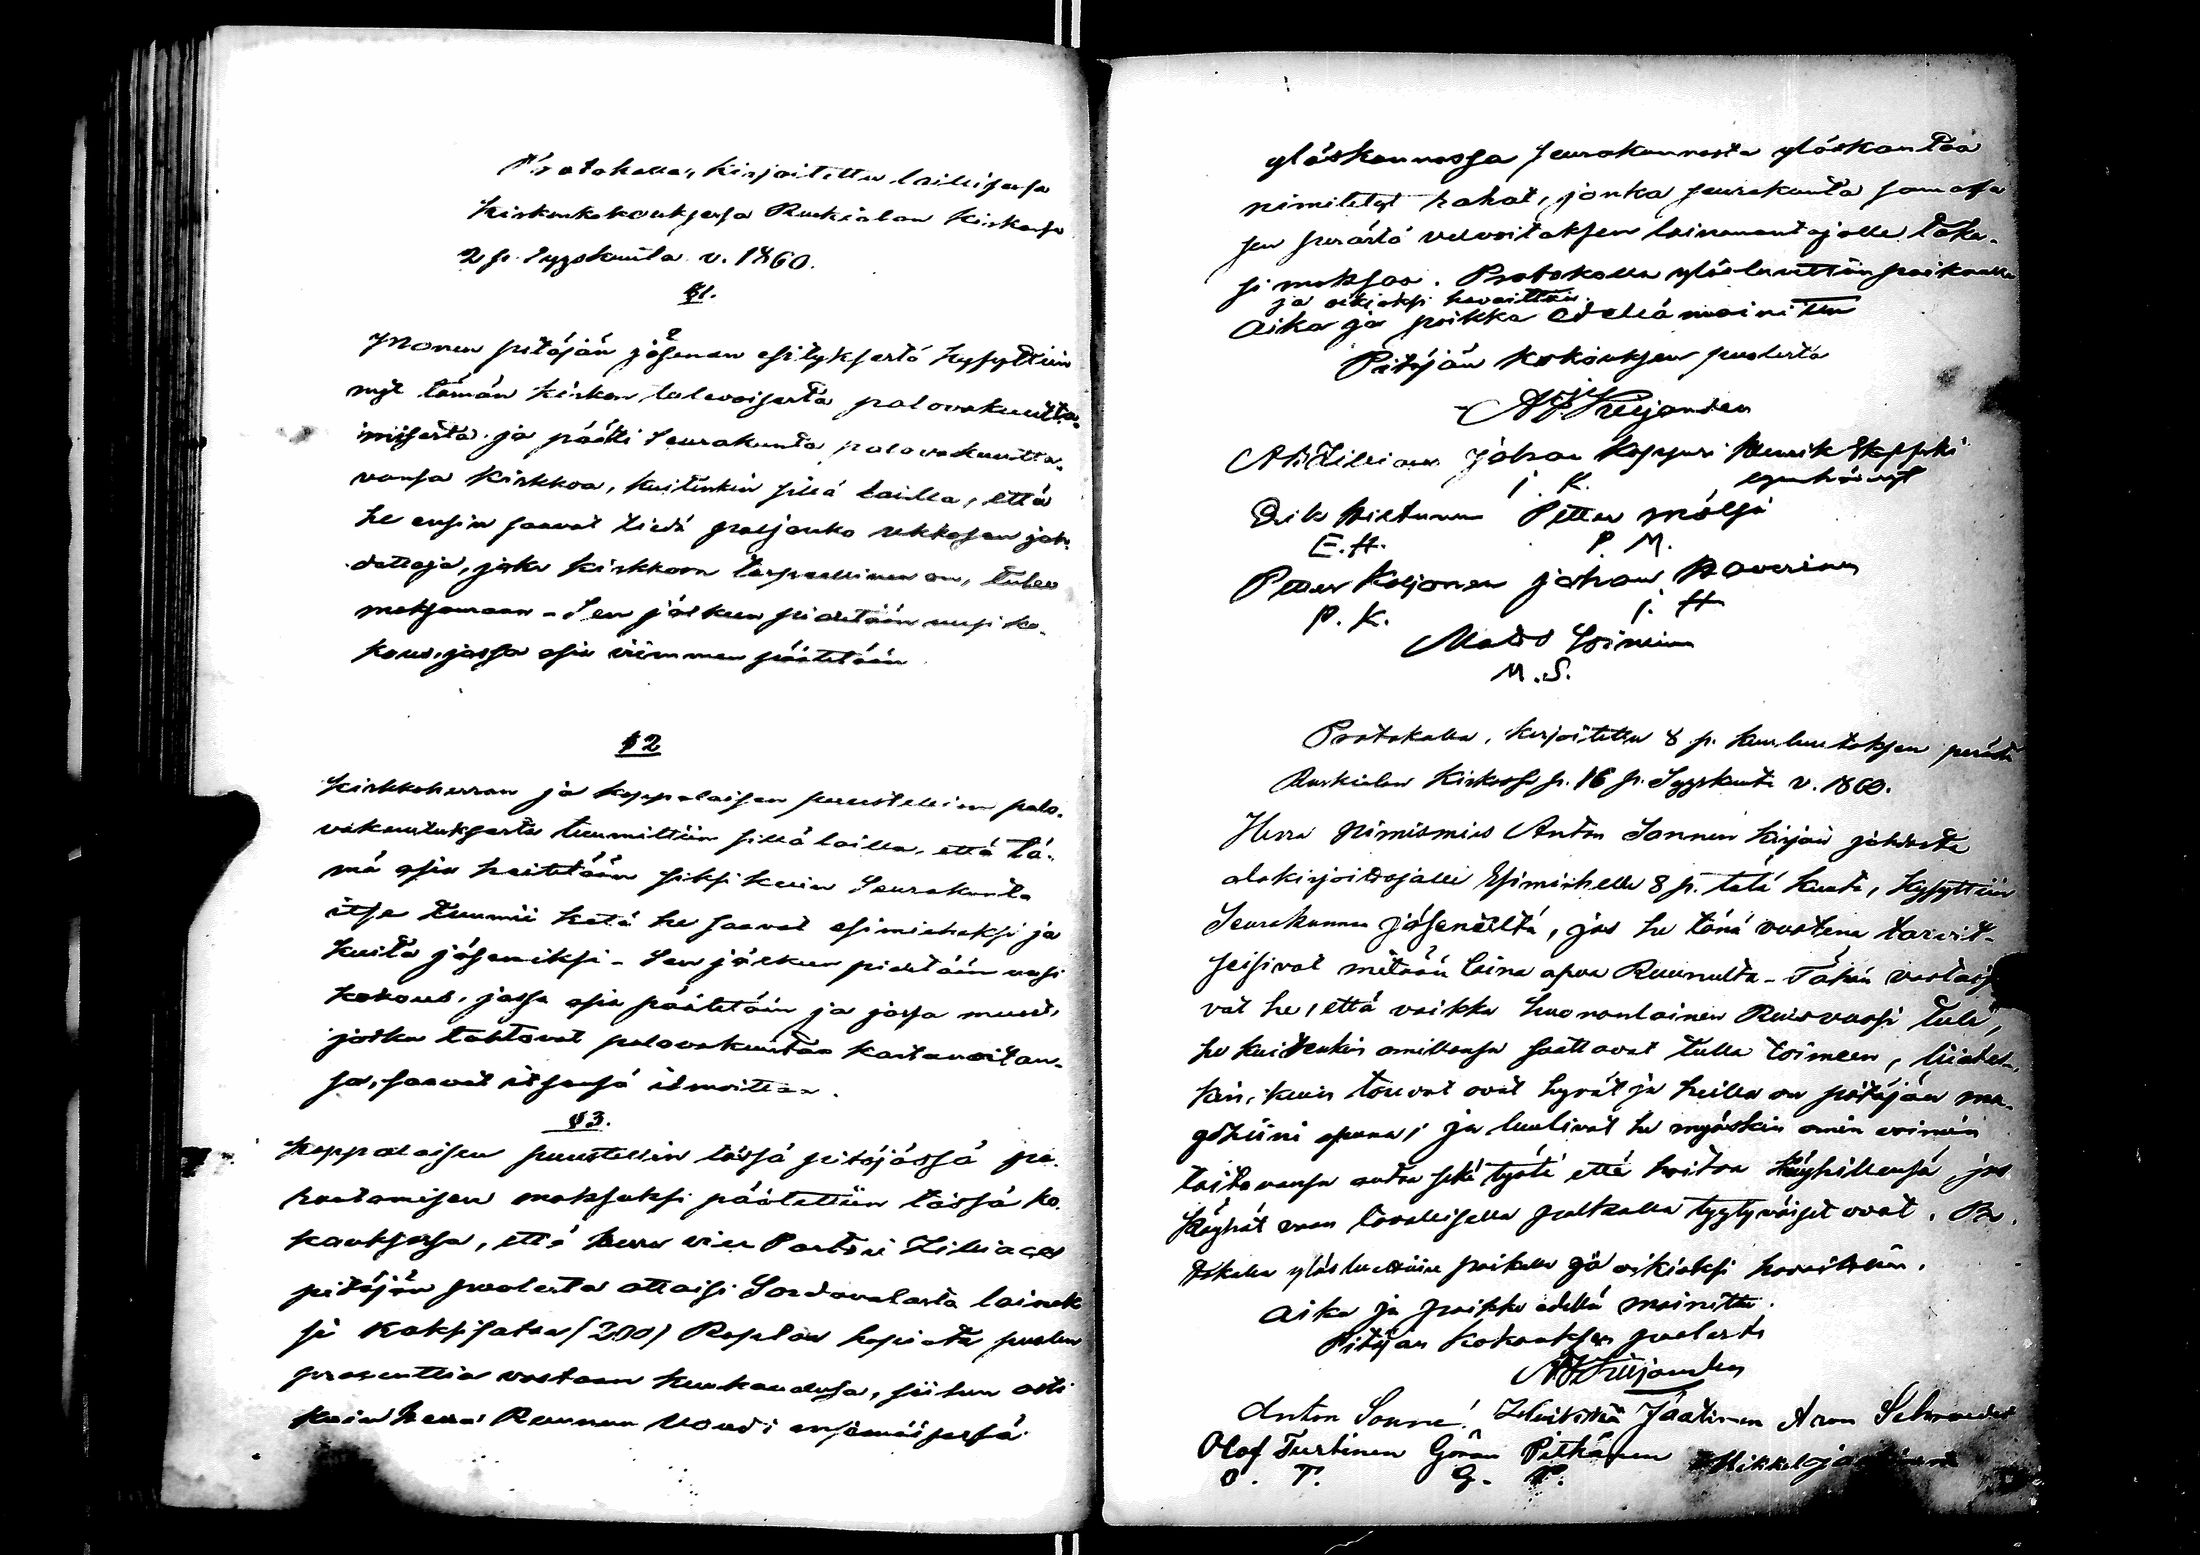 Protokolla, kirjoitettu laillisessa
kirkonkokouksessa Ruskialan kirkossa
2 p. Syyskuuta v. 1860.
§1.
Monen pitäjän jäsenen esityksestä kysyttiin
nyt tämän kirkon tulevaisesta palovakuutta-
misesta ja päätti Seurakunta palovakuutta-
vansa kirkkoa, kuitenkin sillä lailla, että
he ensin saavat tietä paljonko ukkosen joh-
dattaja, joka kirkkoon tarpeellinen on, tulee
maksamaan - Sen jälkeen pidetään uusi ko-
kous, jossa asia viimmen päätetään
§2
Kirkkoherran ja kappalaisen puustellien palo-
vakuutuksesta tuumittiin sillä lailla, että tä-
mä asia heitetään siksi kuin Seurakunta
itse tuumii ketä he saavat esimieheksi ja
keitä jäseniksi - Sen jälkeen pidetään uusi
kokous, jossa asia päätetään ja jossa muut,
jotka tahtovat palovakuuttaa kartanoitan-
sa, saavat itsensä ilmoittaa.
§3.
Kappalaisen puustellin tässä pitäjässä pa-
rantamisen maksuksi päätettiin tässä ko-
kouksessa, että herra vice Pastori Zilliacus
pitäjän puolesta ottaisi Sordavalasta lainak-
si kaksisataa (200) Ruplaa hopiata puolen
prosenttia vastaan kuukaudessa, siihen asti
kuin herra Ruunun Vouti ensimäisessä
yläskannossa Seurakunnasta yläskantaa
nimitetyt rahat, jonka seurakunta samassa
sen perästä velvoitaksen lainanantajalle taka-
si maksaa. Protokolla yläsluettiin paikalla
ja oikiaksi havaittiin.
Aika ja paikka edellä mainittu
Pitäjän kokouksen puolesta
A. Zilliacus Johan Kapyuri Henrik Skeppski
J. K.
Erik Hietanen Petter Mölsä
E. H. P. M.
Petter Koljonen Johan Haverinen
P. K. J. H
Mats Soininen
M. S.
Protokolla, kirjoitettu 8 p. kuulutuksen perästä
Ruskialan kirkossa p. 16 p. Syyskuuta v. 1860.
Herra Nimismies Anton Sonnen kirjan johdosta
alakirjoittajalle Esimiehelle 8 p. tätä kuuta, kysyttiin
Seurakunnan jäseneiltä, jos he tänä vuotena tarvit-
seisivat mitään laina apua Ruunulta - Tähän vastasi-
vat he, että vaikka huononlainen Ruisvuosi tuli,
he kuitenkin omillansa saattavat tulla toimeen, liiaten-
kin, kuin touvot ovat hyvät ja heillä on pitäjän ma-
gasiini apuna; ja luulivat he myöskin omin voimin
taitavansa antaa sekä työtä että hoitoa köyhillensä, jos
köyhät vaan tavallisella palkalla tyytyväiset ovat. Pro-
tokolla yläsluettiin paikalla ja oikiaksi havaittiin.
Aika ja paikka edellä mainittu.
Pitäjän kokouksen puolesta
Anton Sonne! Jäätinen Aron Schroeder
Olof Turtinen Göran Pitkänen Mikkel
O. T. G. P.